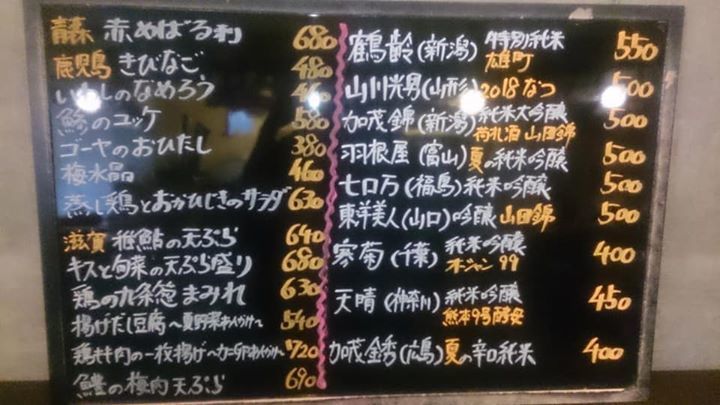 青森 赤めばる刺 680
鹿児島 きびなご 480
いわしのなめろう 460
鯵のユッケ 580
ゴーヤのおひたし 380
梅水晶 460
蒸し鶏とおかひじきのサラダ 630
滋賀 稚鮎の天ぷら 640
キスと旬菜の天ぷら盛り 680
鶏の九条葱まみれ 630
揚げだし豆腐〜夏野菜あんかけ〜 540
鶏もも肉の一枚揚げ 720
鱧の梅肉天ぷら 690
鶴齢(新潟) 特別純米 雄町 550
山川光男(山形) 2018 なつ 500
加茂錦(新潟) 純米大吟醸 荷札酒 山田錦 500
羽根屋(富山) 夏の純米吟醸 500
七ロ万(福島) 純米吟醸 500
東洋美人(山口) 吟醸 山田錦 500
寒菊(千葉) 純米吟醸 オーシャン99 400
天晴(神奈川) 純米吟醸 熊本9号酵母 450
加茂金秀(広島) 夏の辛口純米 400